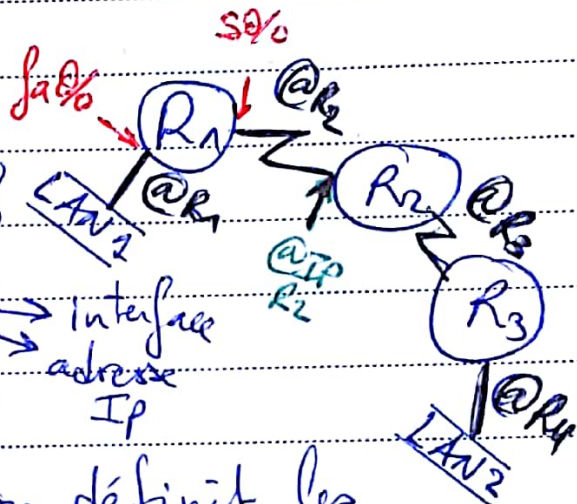 S0/0
fa0/0
@R2
R1
@R1
LAN1
R2
@R3
@IP
R2
→ interface
→ adresse
IP
R3
@R4
LAN2
définit les